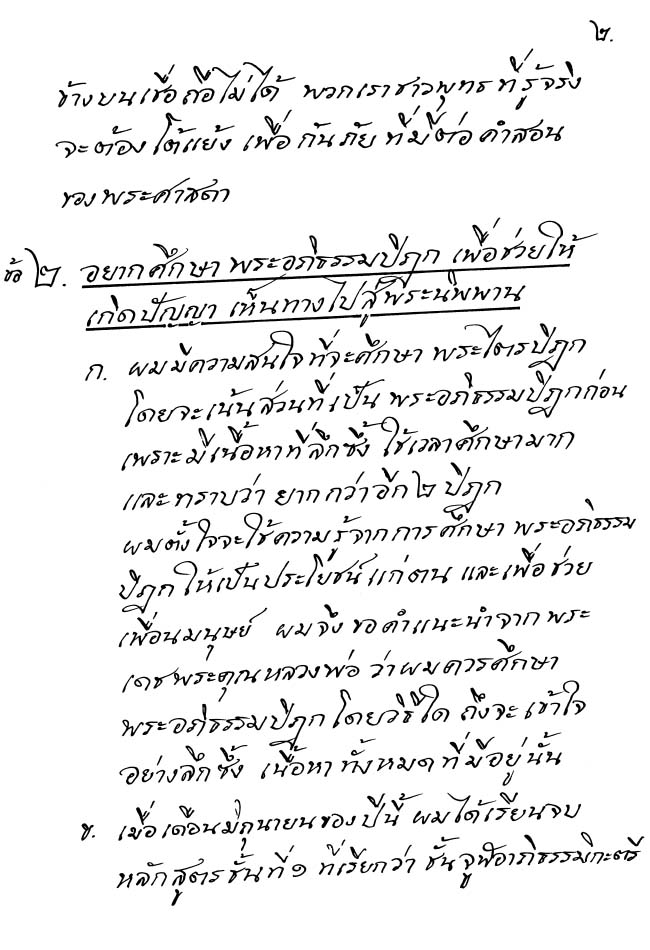 ๒.
ข้างบนเชื่อถือไม่ได้ พวกเราชาวพุทธที่รู้จริง
จะต้องโต้แย้ง เพื่อกันภัยที่มีต่อคำสอน
ของพระศาสดา
ข้อ ๒. อยากศึกษาพระอภิธรรมปิฎก เพื่อช่วยให้
เกิดปัญญา เห็นทางไปสู่พระนิพพาน
ก. ผมมีความสนใจที่จะศึกษา พระไตรปิฎก
โดยจะเน้นส่วนที่เป็น พระอภิธรรมปิฎกก่อน
เพราะมีเนื้อหาที่ลึกซึ้ง ใช้เวลาศึกษามาก
และทราบว่า ยากกว่าอีก ๒ ปิฎก
ผมตั้งใจจะใช้ความรู้จากการศึกษา พระอภิธรรม
ปิฎก ให้เป็นประโยชน์แก่ตน และเพื่อช่วย
เพื่อนมนุษย์ ผมจึงขอคำแนะนำจากพระ
เดชพระคุณหลวงพ่อ ว่าผมควรศึกษา
พระอภิธรรมปิฎกโดยวิธีใด ถึงจะเข้าใจ
อย่างลึกซึ้ง เนื้อหาทั้งหมดที่มีอยู่นั้น
ข. เมื่อเดือนมิถุนายนของปีนี้ ผมได้เรียนจบ
หลักสูตรชั้นที่ ๑ ที่เรียกว่า ชั้นจูฬอาภิธรรมิกะตรี